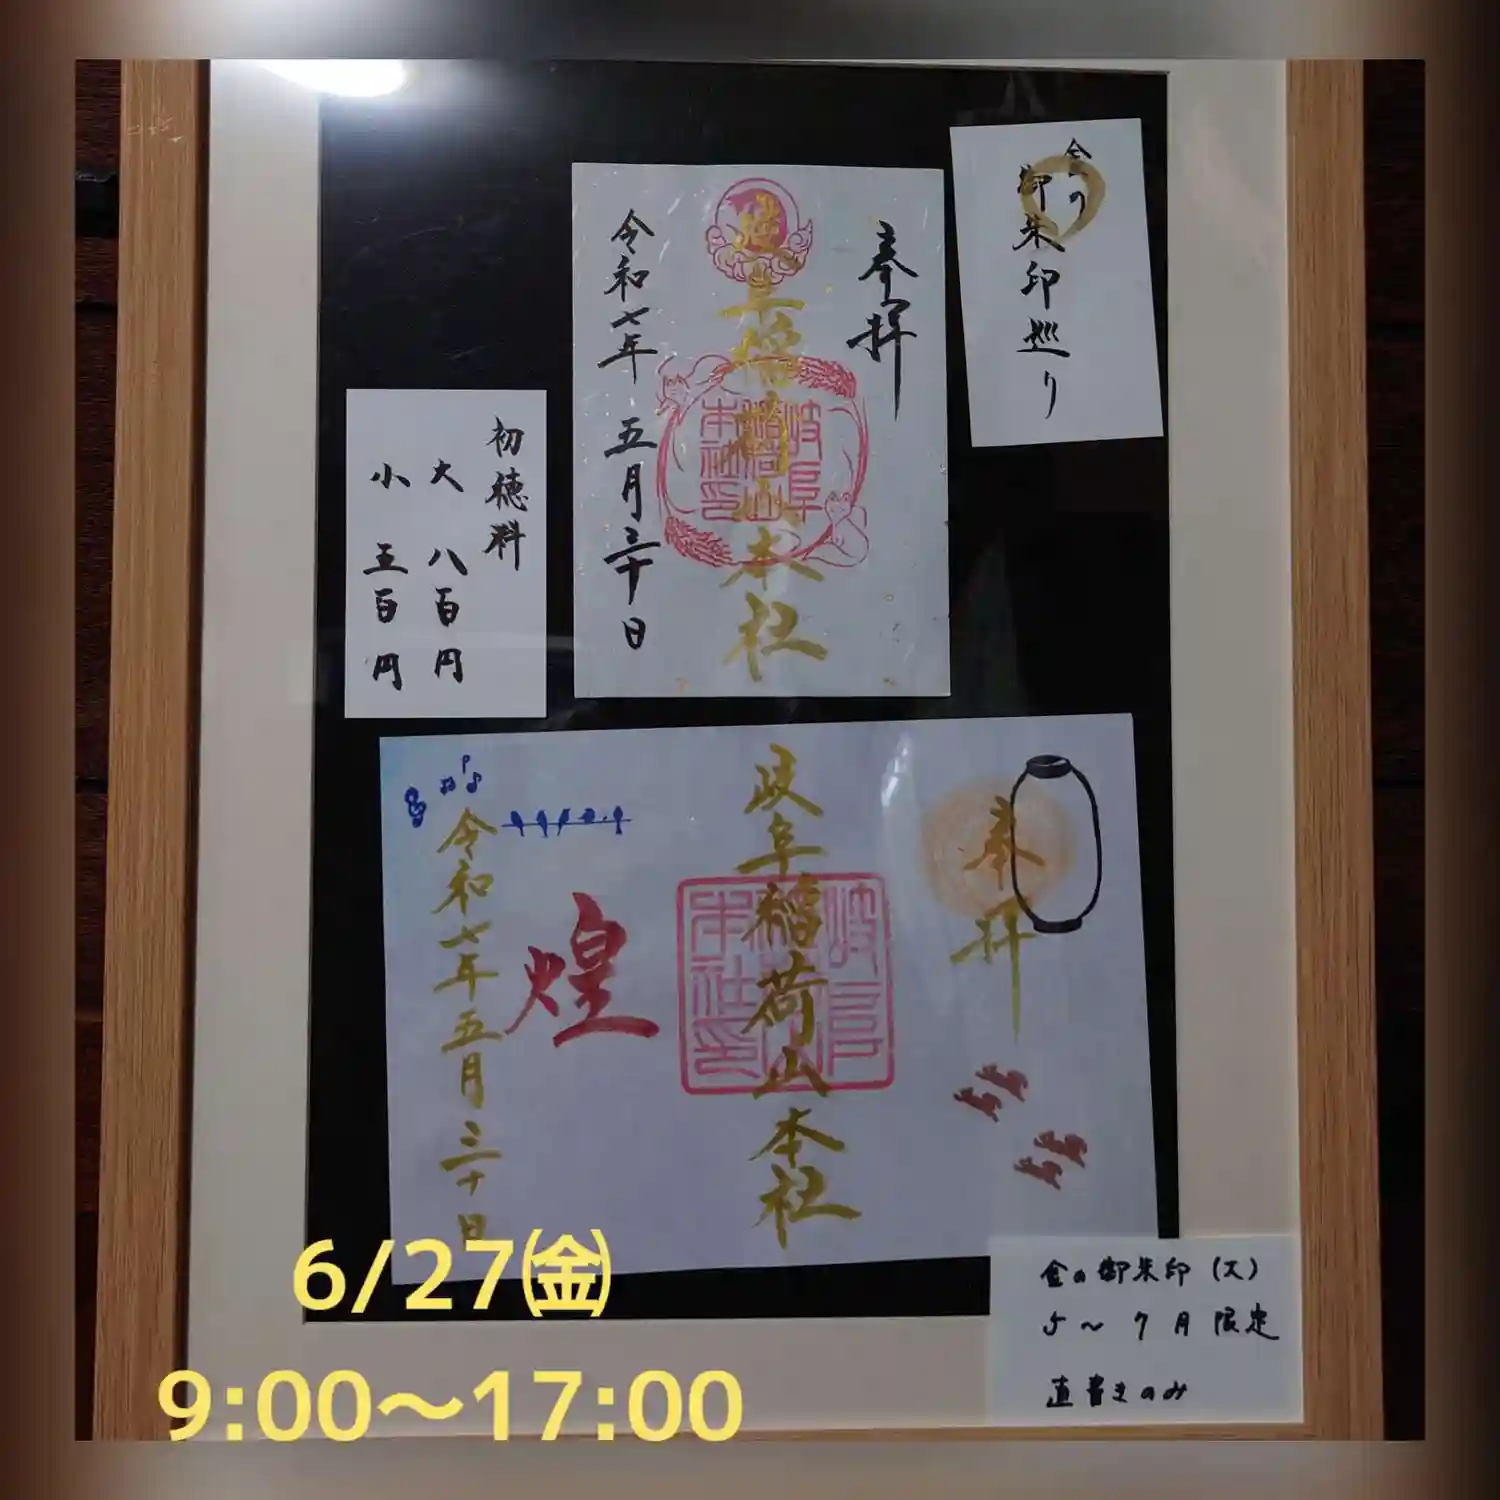 金の
御朱印巡り
奉拝
岐阜稲荷山本社
岐阜稲荷山本社印
令和七年 五月三十日
初穂料
大 八百円
小 五百円
奉拝
岐阜稲荷山本社
岐阜稲荷山本社印
煌
令和七年五月三十日
金の御朱印(大)
5〜7月限定
直書きのみ
6/27㈮
9:00〜17:00